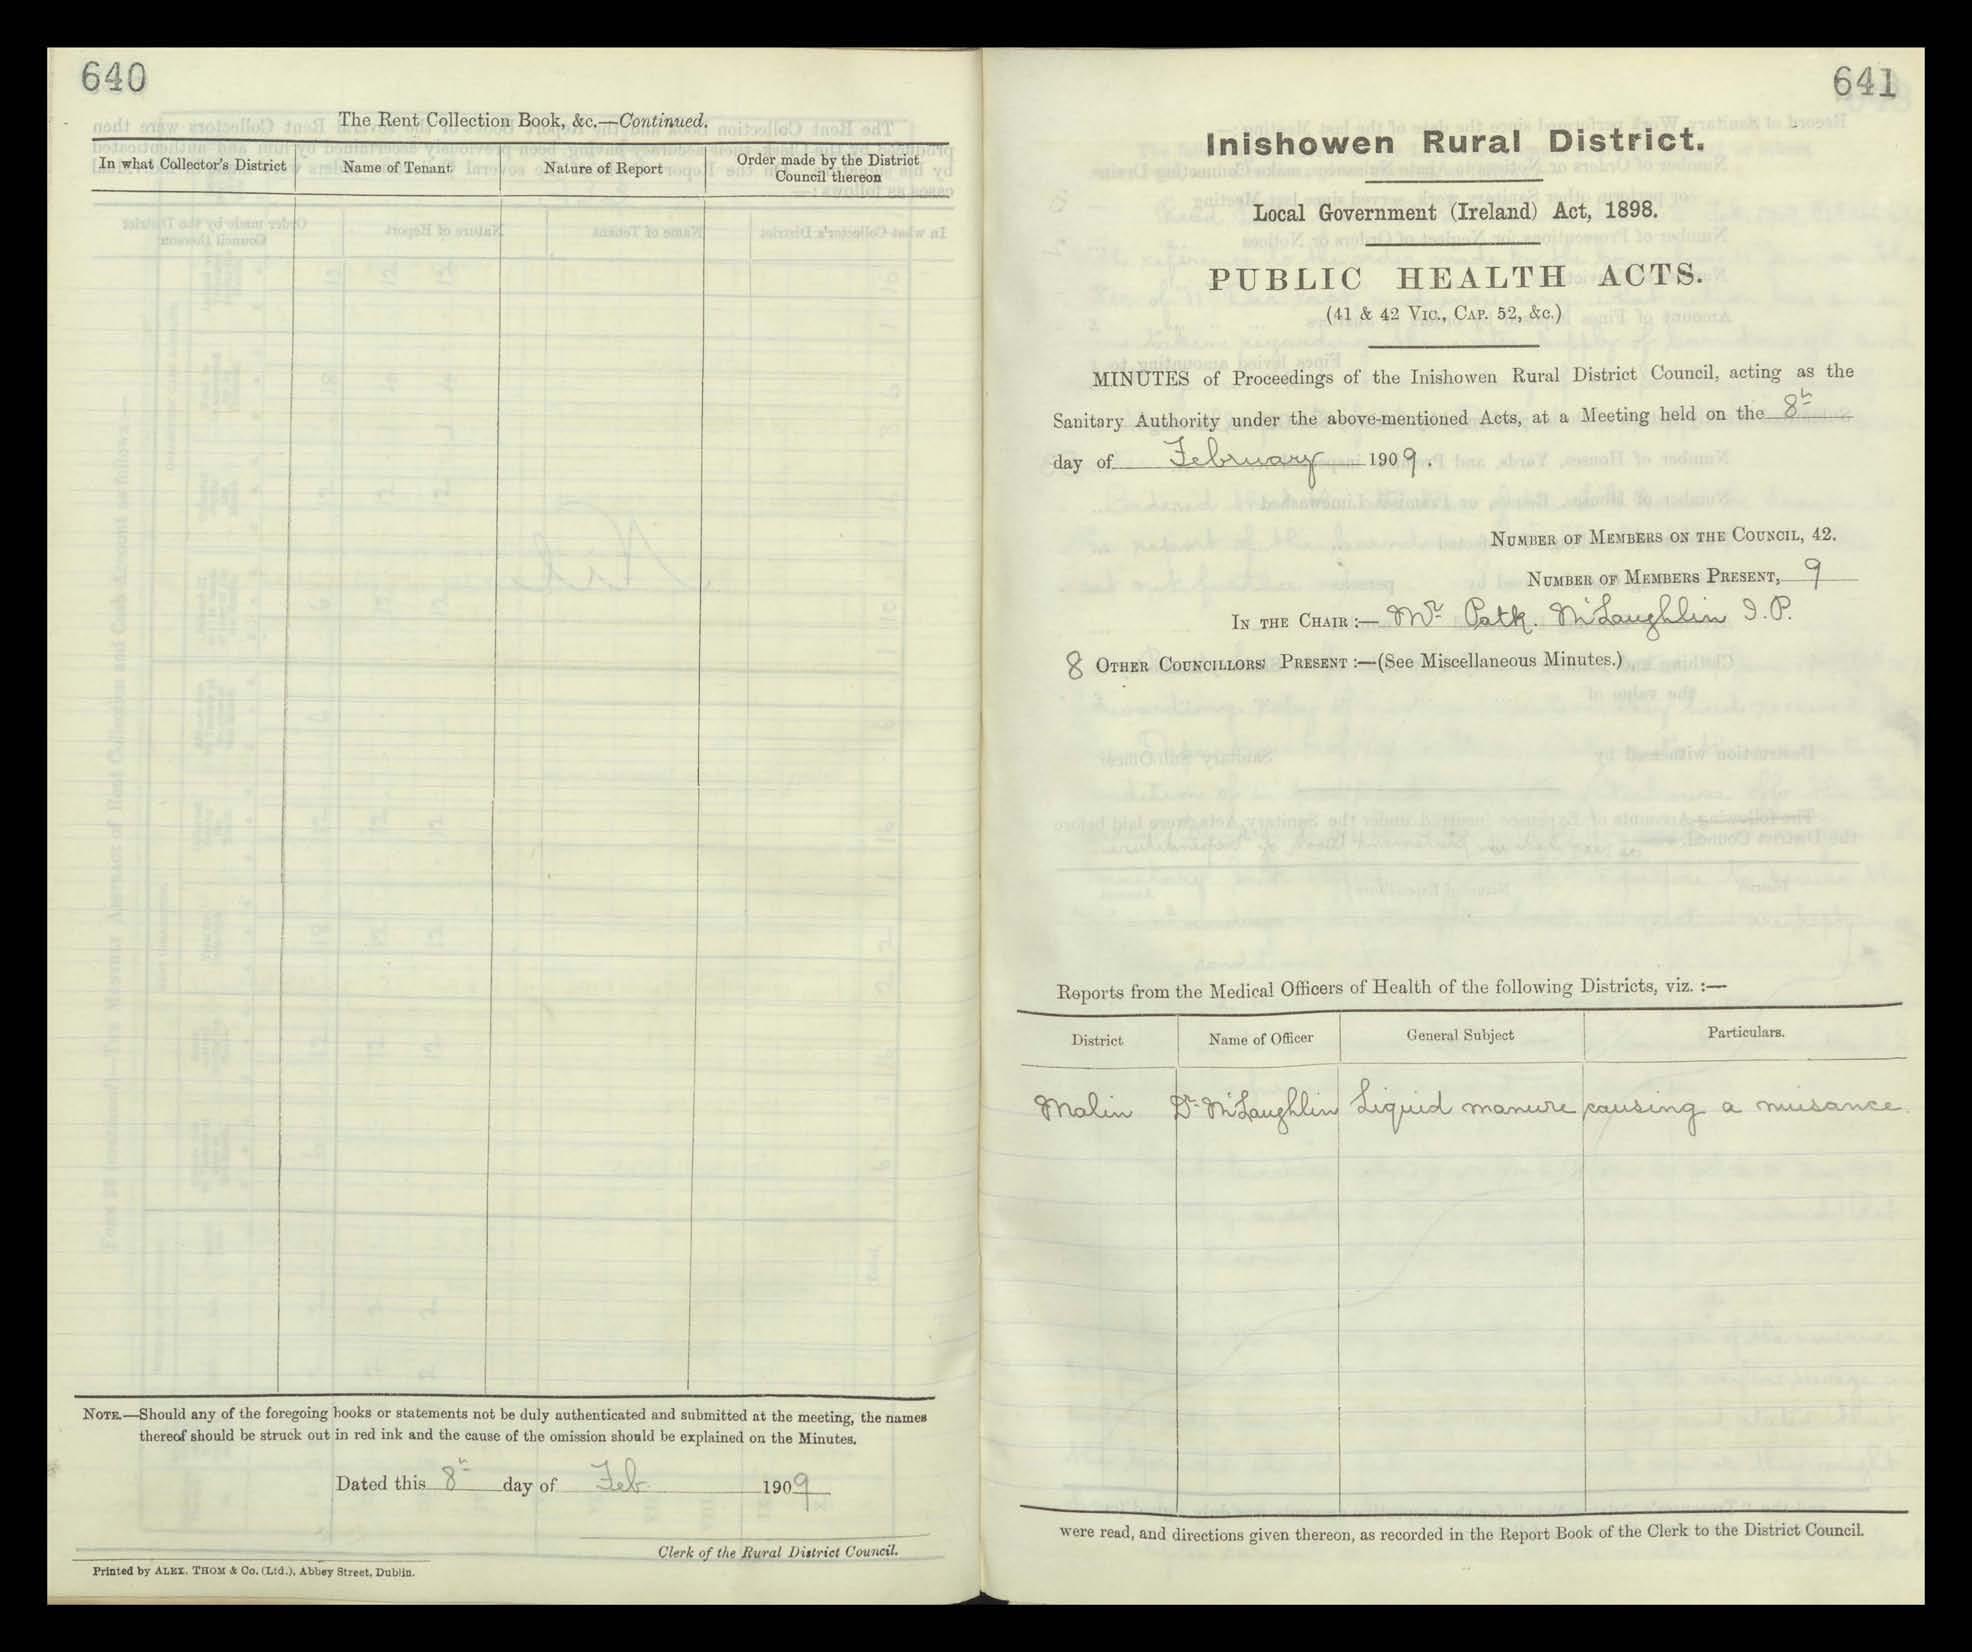 640
The Rent Collection Book, &c.—Continued.
In what Collector's District
Name of Tenant
Nature of Report
Order made by the District
Council thereon
NOTE.—Should any of the foregoing books or statements not be duly authenticated and submitted at the meeting, the names
thereof should be struck out in red ink and the cause of the omission should be explained on the Minutes.
Dated this 8th day of Feb 1909
Clerk of the Rural District Council.
Printed by ALEX. THOM & Co. (Ltd.), Abbey Street, Dublin.
641
Inishowen Rural District.
Local Government (Ireland) Act, 1898.
PUBLIC HEALTH ACTS.
(41 & 42 VIC., CAP. 52, &c.)
MINUTES of Proceedings of the Inishowen Rural District Council, acting as the
Sanitary Authority under the above-mentioned Acts, at a Meeting held on the 8th
day of February 1909.
NUMBER OF MEMBERS ON THE COUNCIL, 42.
NUMBER OF MEMBERS PRESENT, 9
IN THE CHAIR :— Mr Patk. McLaughlin J.P.
8 OTHER COUNCILLORS PRESENT :—(See Miscellaneous Minutes.)
Reports from the Medical Officers of Health of the following Districts, viz. :—
District Name of Officer General Subject Particulars.
Malin Dr McLaughlin Liquid manure causing a nuisance.
were read, and directions given thereon, as recorded in the Report Book of the Clerk to the District Council.